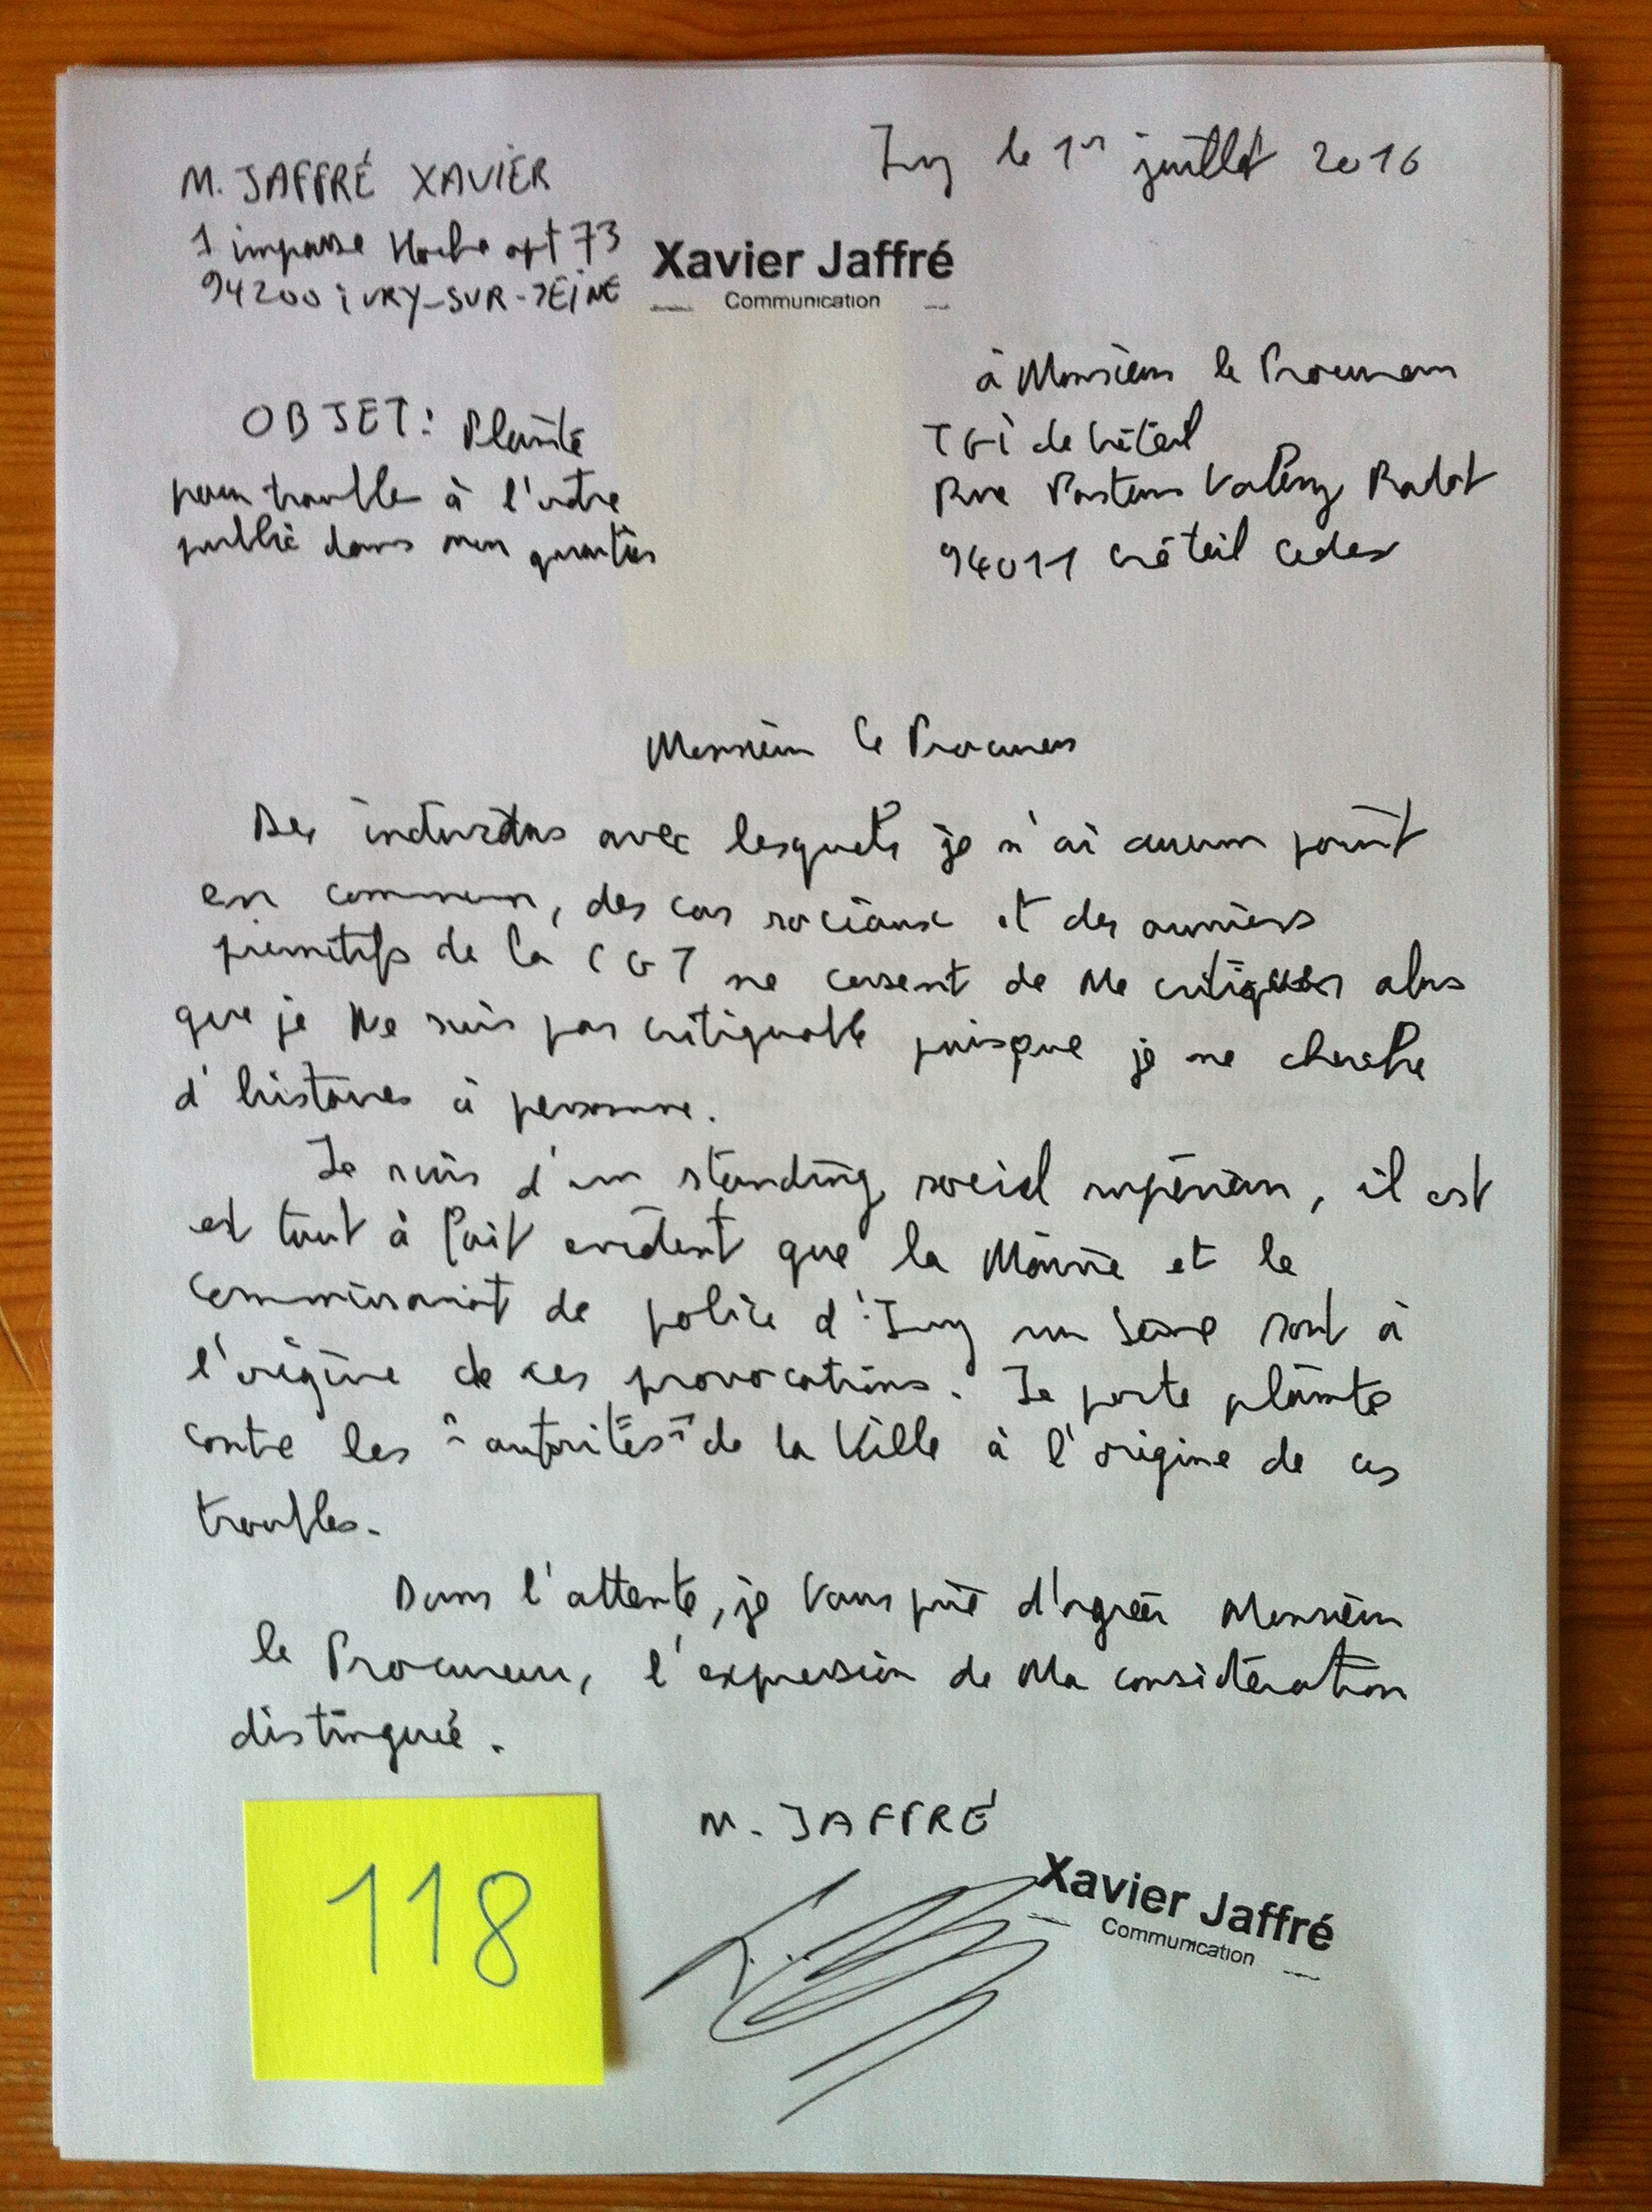 M. JAFFRÉ XAVIER
1 impasse Hoche apt 73
94200 iVRY-SUR-SEiNE
Ivry le 1er juillet 2016
Xavier Jaffré
Communication
OBJET: Plainte
pour trouble à l'ordre
public dans mon quartier
à Monsieur le Procureur
TGI de Créteil
Rue Pasteur Valléry Radot
94011 Créteil Cedex
Monsieur le Procureur
Des individus avec lesquels je n'ai aucun point
en commun, des cas sociaux et des ouvriers
primitifs de la CGT ne cessent de me critiquer alors
que je ne suis pas critiquable puisque je ne cherche
d'histoires à personne.
Je suis d'un standing social supérieur, il est
est tout à fait evident que la Mairie et le
commissariat de police d'Ivry sur Seine sont à
l'origine de ces provocations. Je porte plainte
contre les "autorités" de la Ville à l'origine de ces
troubles.
Dans l'attente, je vous prie d'agréer Monsieur
le Procureur, l'expression de ma considération
distinguée.
M. JAFFRÉ
Xavier Jaffré
Communication
118